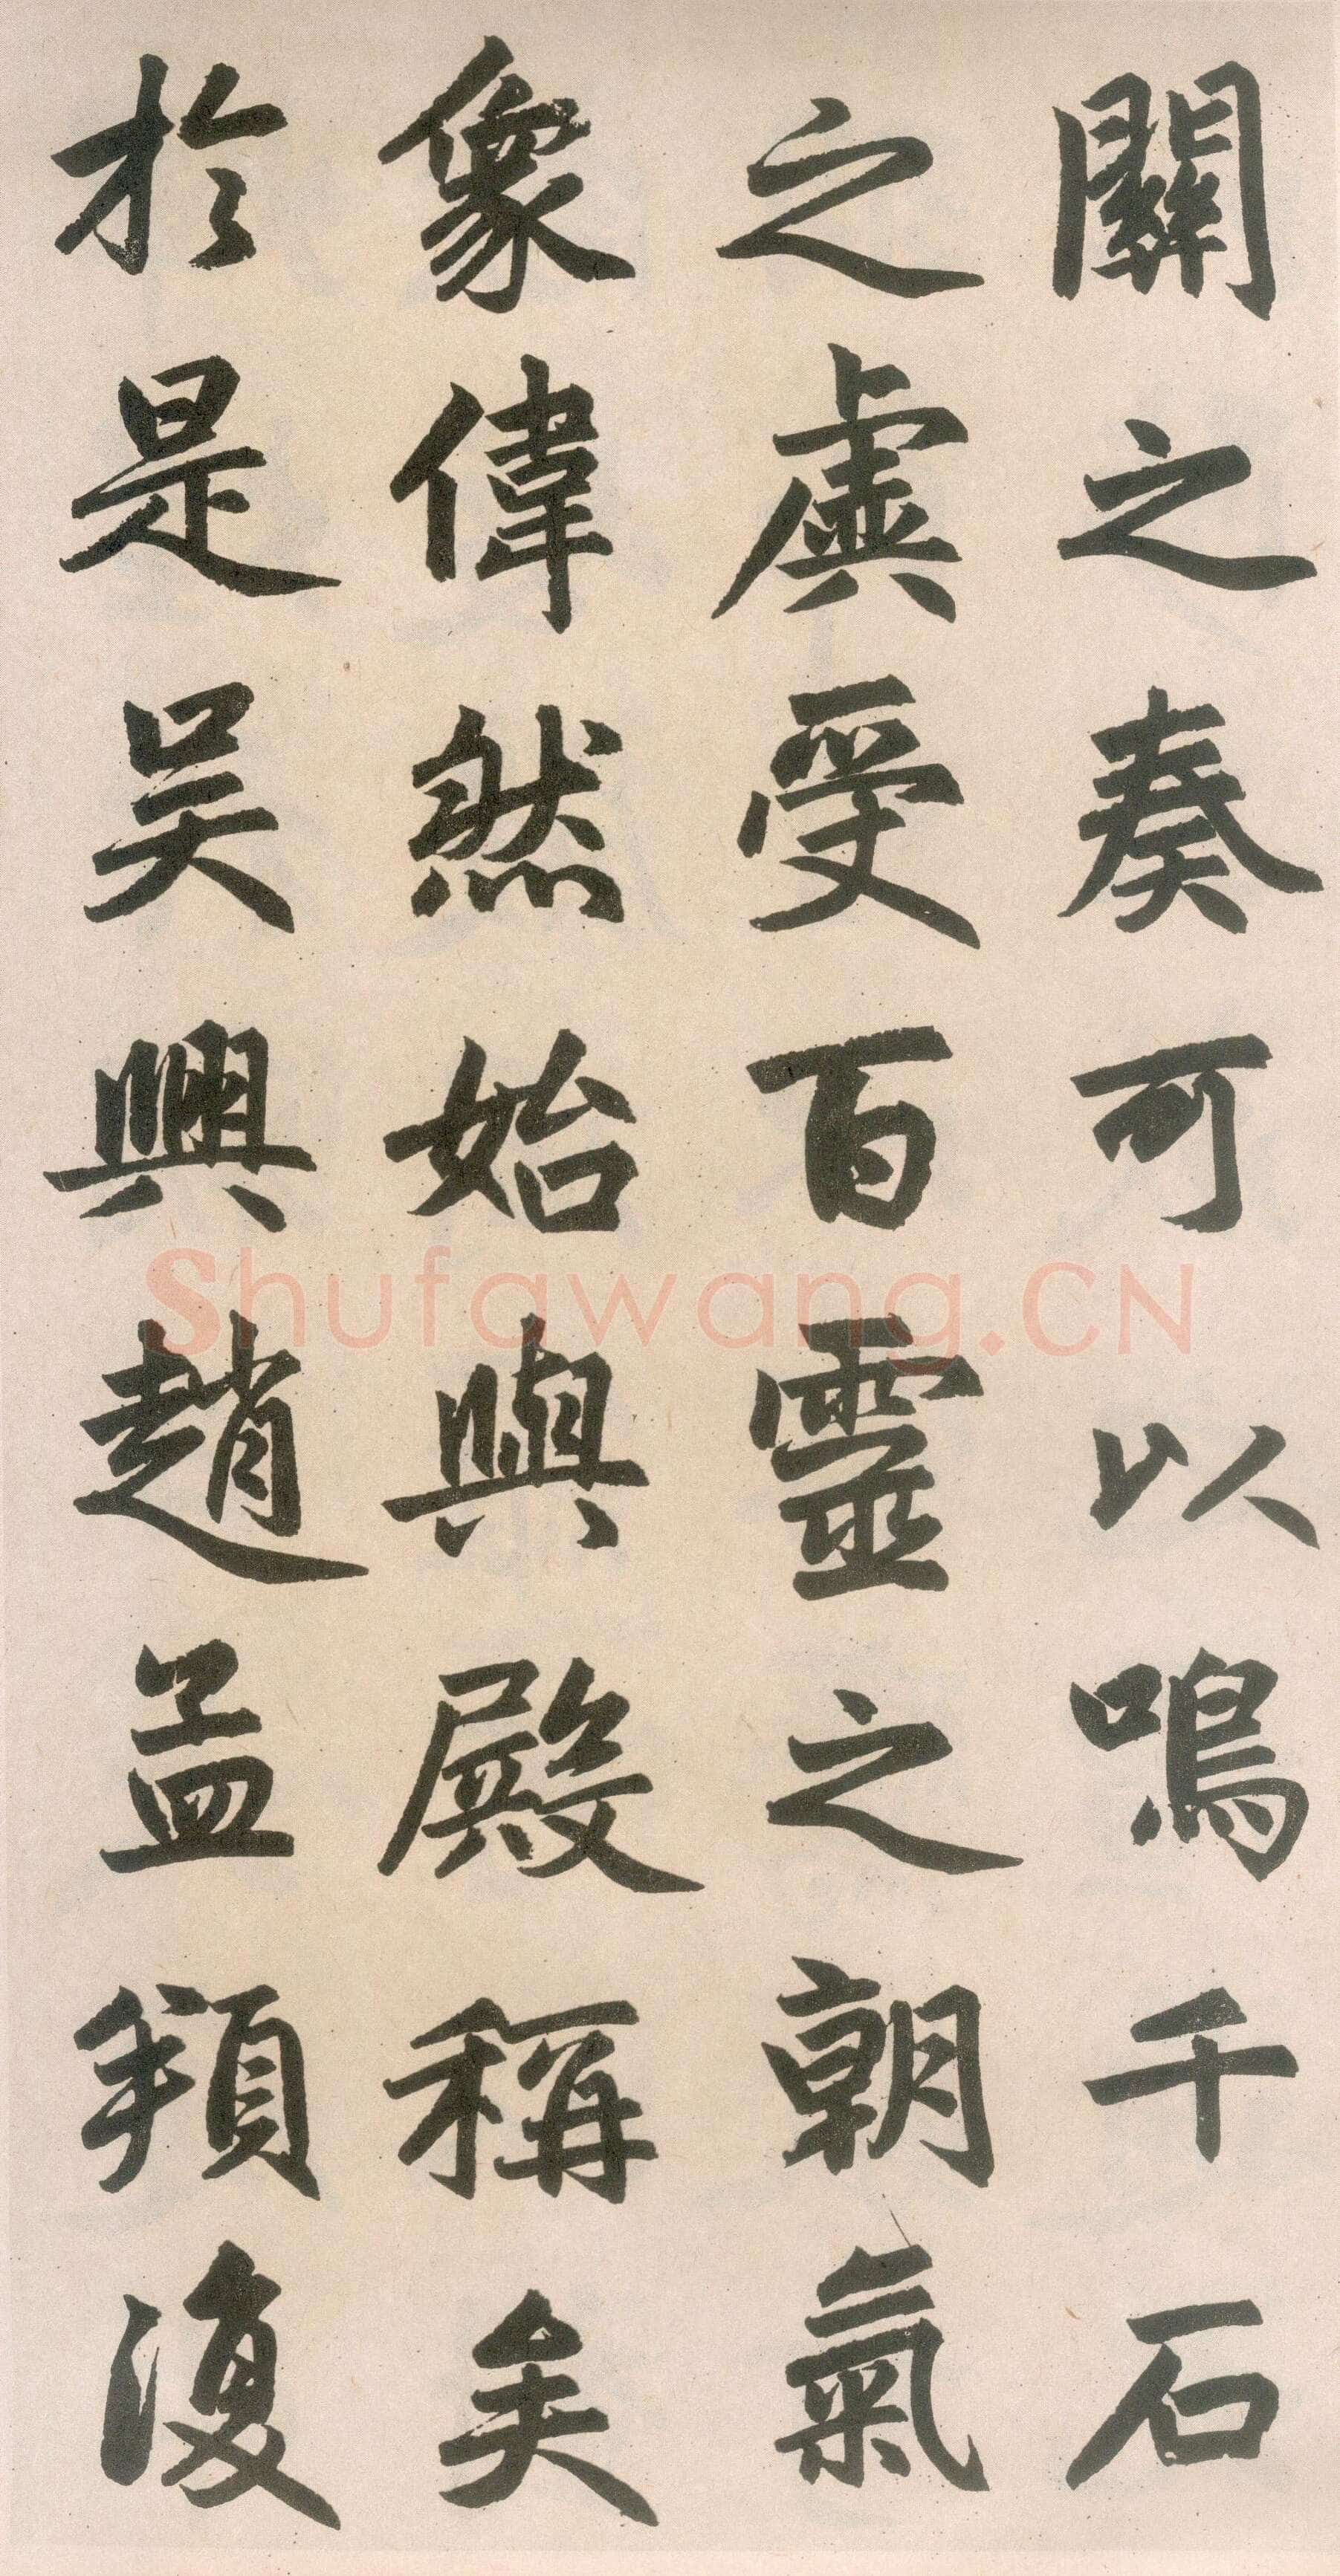 關之奏可以鳴千石
之虡受百靈之朝氣
象偉然始與殿稱矣
於是吳興趙孟頫復
Shufawang.CN